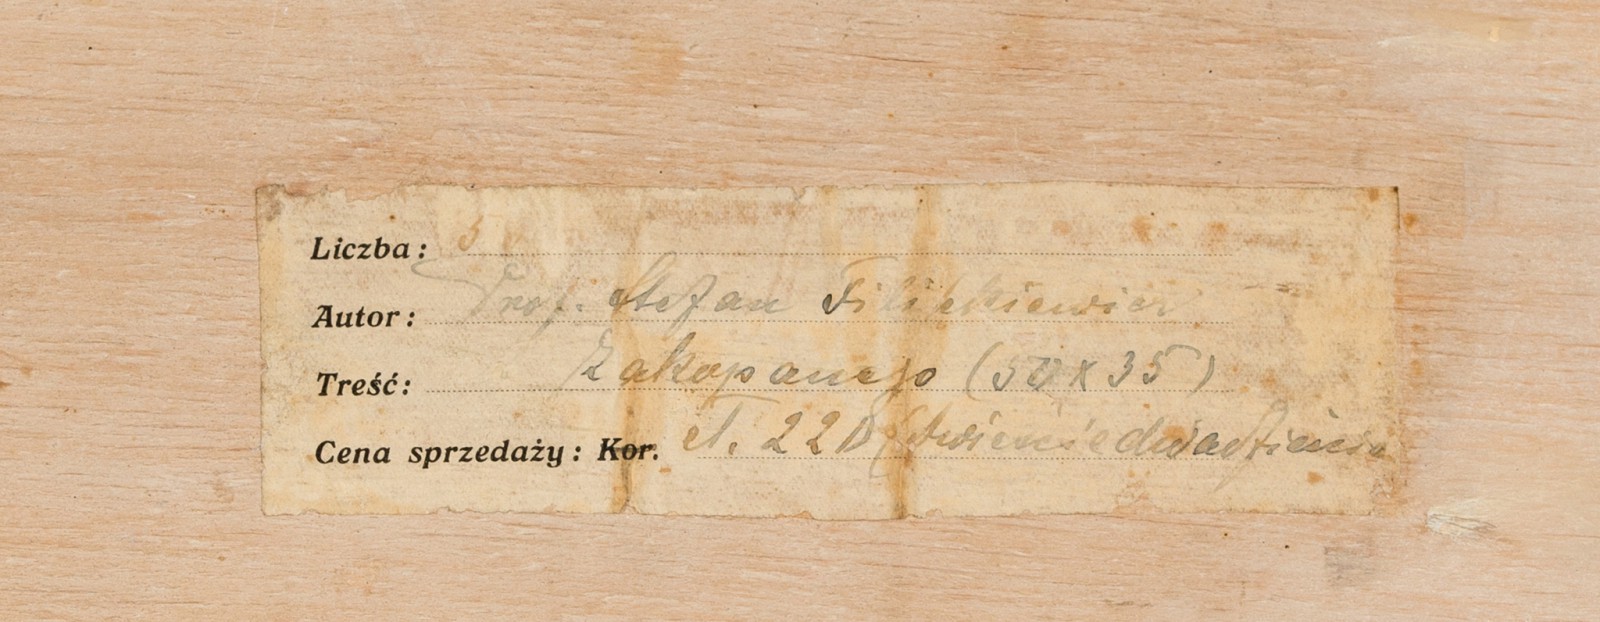 Liczba:
Autor: Prof. Stefan Filipkiewicz
Treść: Zakopanego (50 x 35)
Cena sprzedaży: Kor. zł. 220 (dwieście dwadzieścia